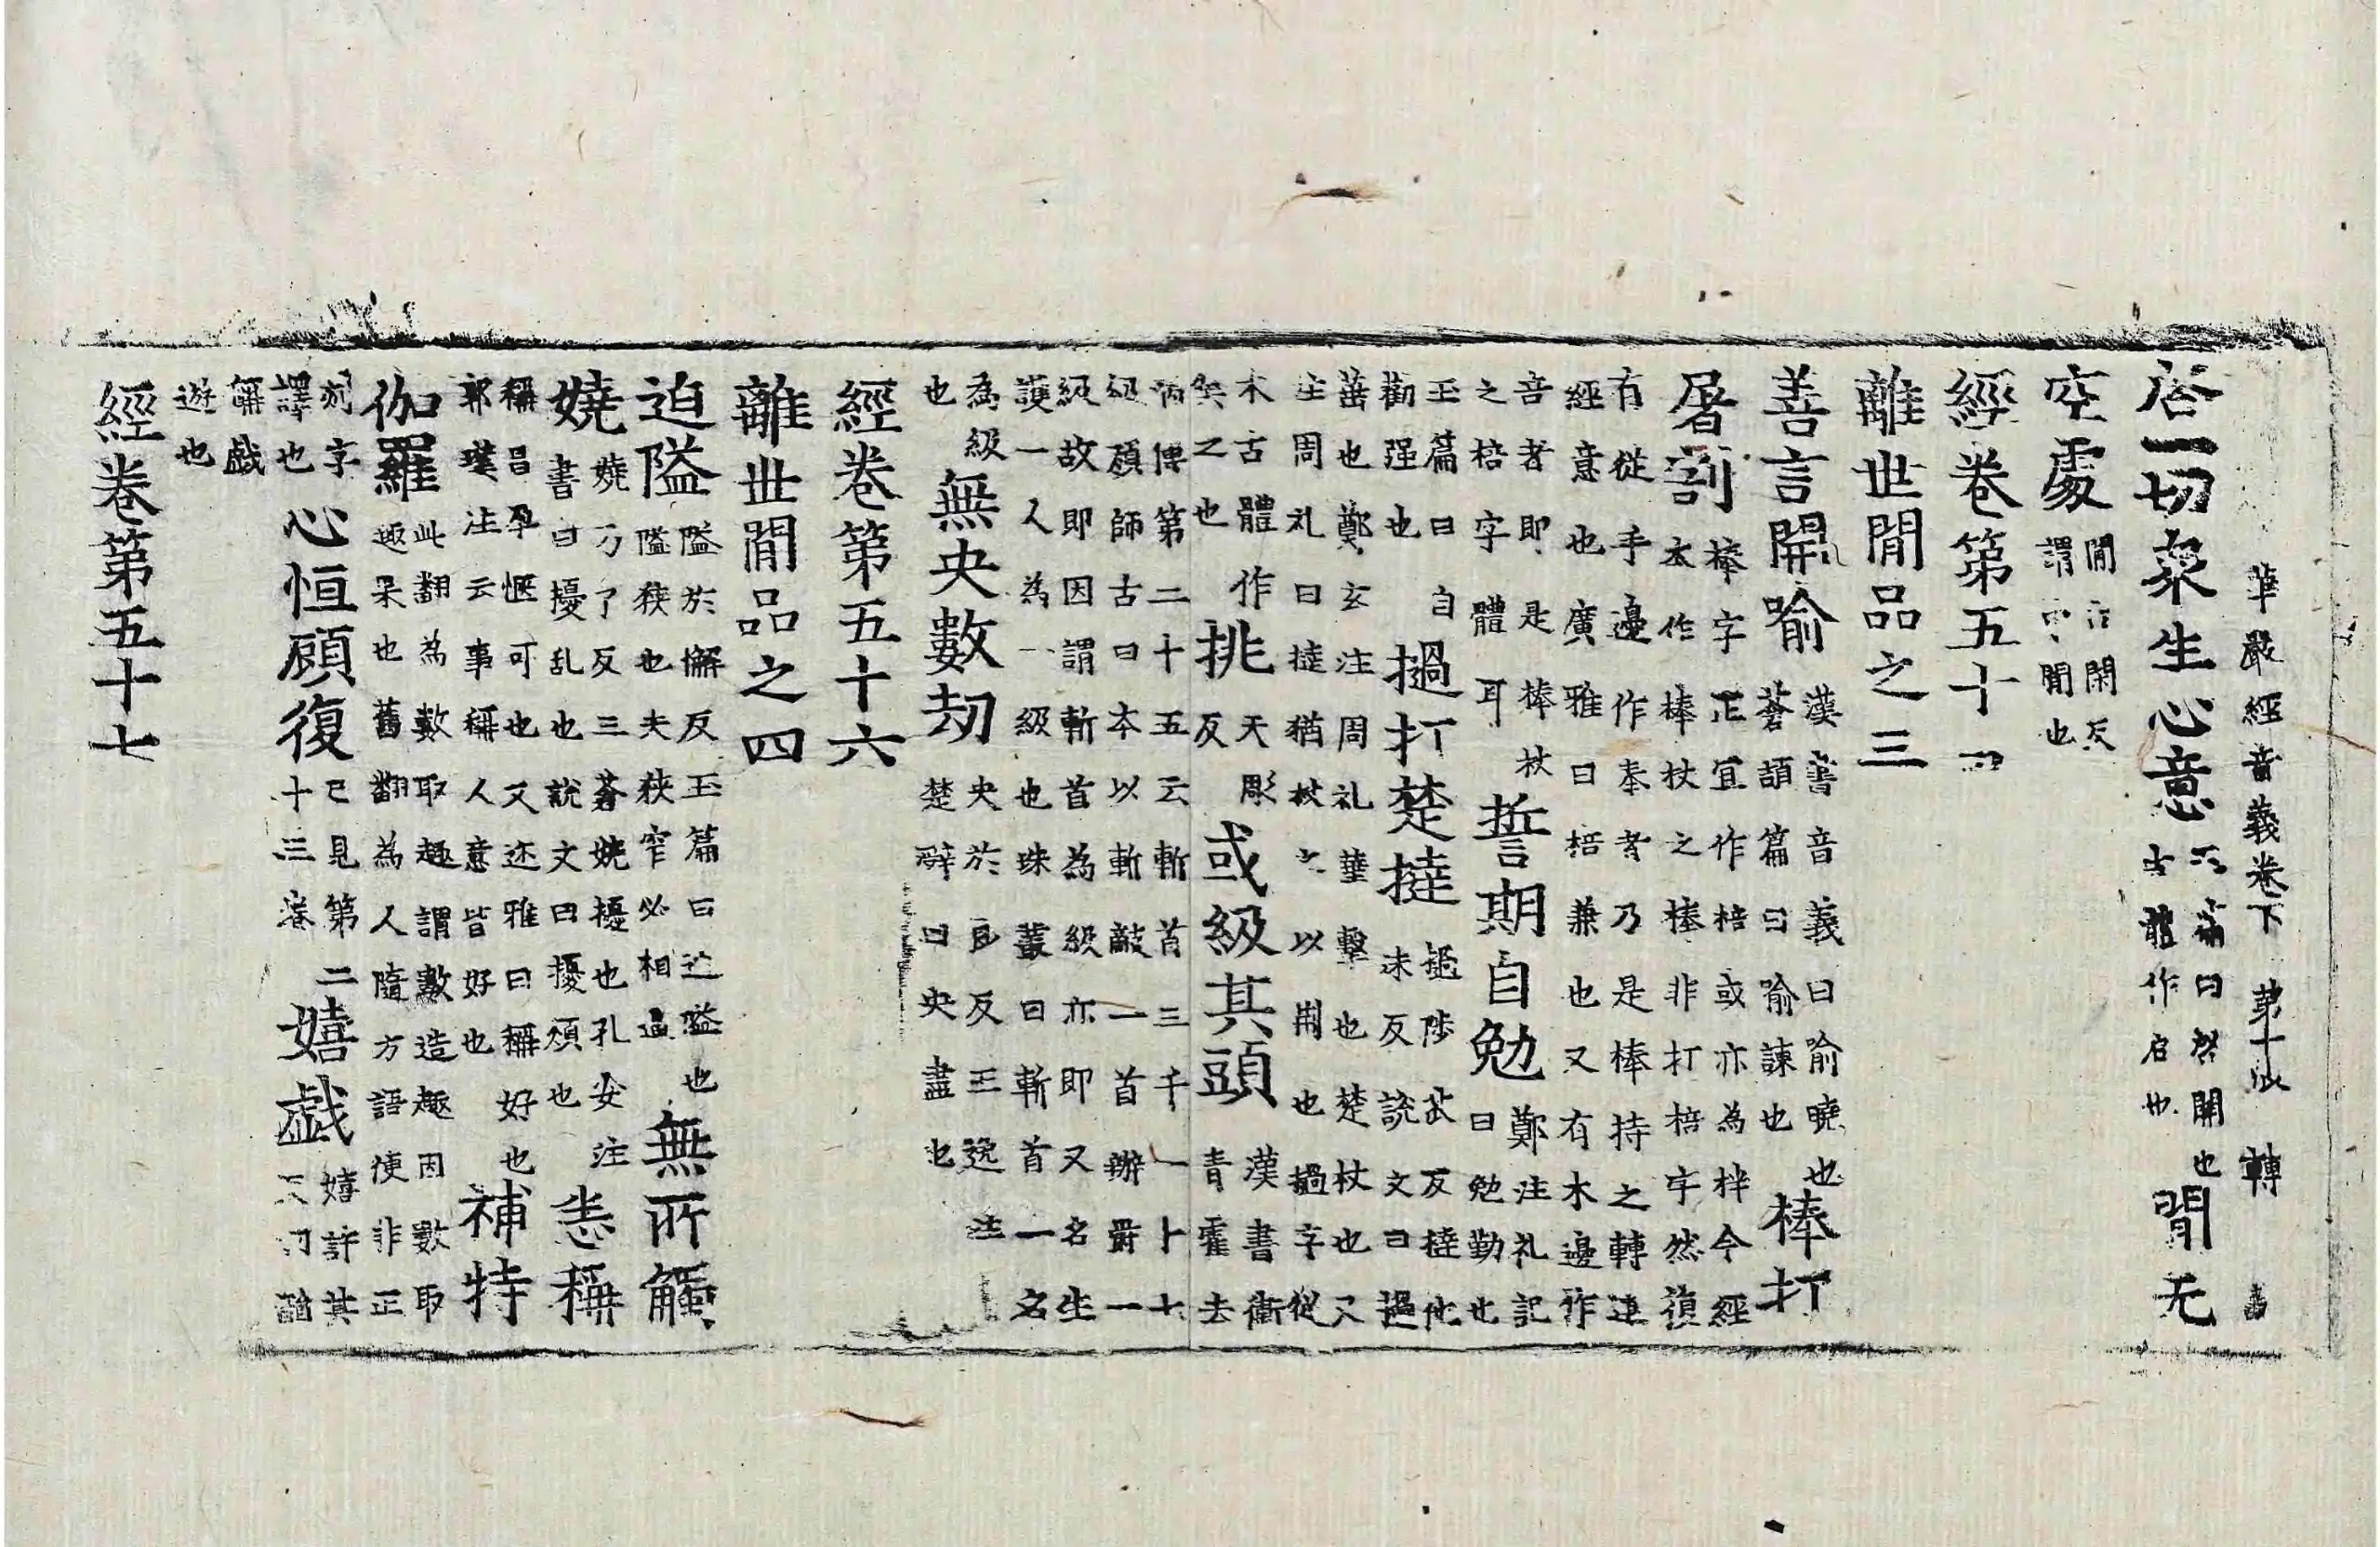 華嚴經音義卷下 第十 轉
启一切衆生心意 曰啓開也古體作启也 閒无
空處 閒 閑反謂中間也
經卷第五十四
離世間品之三
善言開喻 漢書音義曰喻曉也蒼頡篇曰喻諫也 棒打
屠割 棒字正宜作棓或亦為柈今經本作棒杖之棒非打棓字然復
有從手邊作奉者乃是棒持之轉達經意也廣雅曰棓兼也又有木邊作
音者即是棒杖之棓字體耳 誓期自勉 鄭注礼記曰勉勤也
玉篇曰自勸强也 撾打楚撻 撾陟苽反撻他末反說文曰撾
菙也鄭玄注周礼菙擊也楚杖也又注周礼曰撻猶杖之以荆也撾字從
木古體作𥬲之也 挑 天彫反 或級其頭 漢書衛青霍去
病傳第二十五云斬首三千一十七級顔師古曰本以斬敵一首辦爵一
級故即因謂斬首為級亦即又名生護一人為一級也珠叢曰斬首一名
為級也 無央數劫 央於良反王逸注楚辭曰央盡也
經卷第五十六
離世間品之四
迫隘 隘於懈反玉篇曰迮隘也隘狹也夫狹窄必相逼 無所觸
嬈 嬈乃了反三蒼嬈擾也孔安注書曰擾乱也說文曰擾煩也 恚稱
稱昌孕愜可也又迩雅曰稱好也郭璞注云事稱人意皆好也 補特
伽羅 此翻為數取趣謂數造趣因數取趣果也舊翻為人隨方語便非正
刻字譯也 心恒顧復 已見第二十三卷 嬉戯 嬉許其
稱戯遊也
經卷第五十七